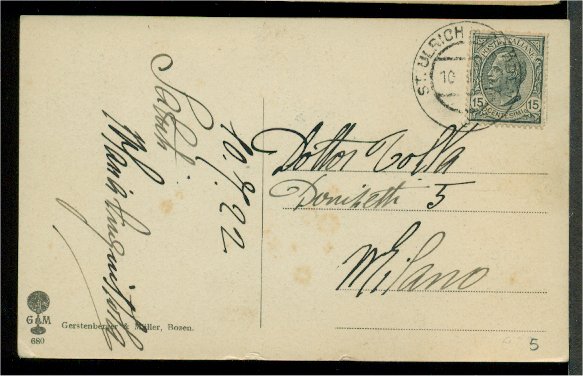 ST. ULRICH
10
POSTE ITALIANE
15 15
CENTESIMI
Saluti
10.8.22
Dottor Tolla
Donizetti 5
Milano
G & M
680
Gerstenberger & Müller, Bozen.
5